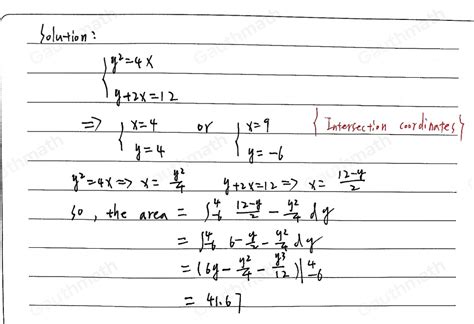 Solution:
{ y²=4x
{ y+2x=12
=> { x=4 or { x=9 { Intersection coordinates }
{ y=4 { y=-6
y²=4x => x= y²/4 y+2x=12 => x= (12-y)/2
so, the area = ∫⁴₋₆ (12-y)/2 - y²/4 dy
= ∫⁴₋₆ 6- y/2 - y²/4 dy
= (6y - y²/4 - y³/12)|⁴₋₆
= 41.67
Gauthmath